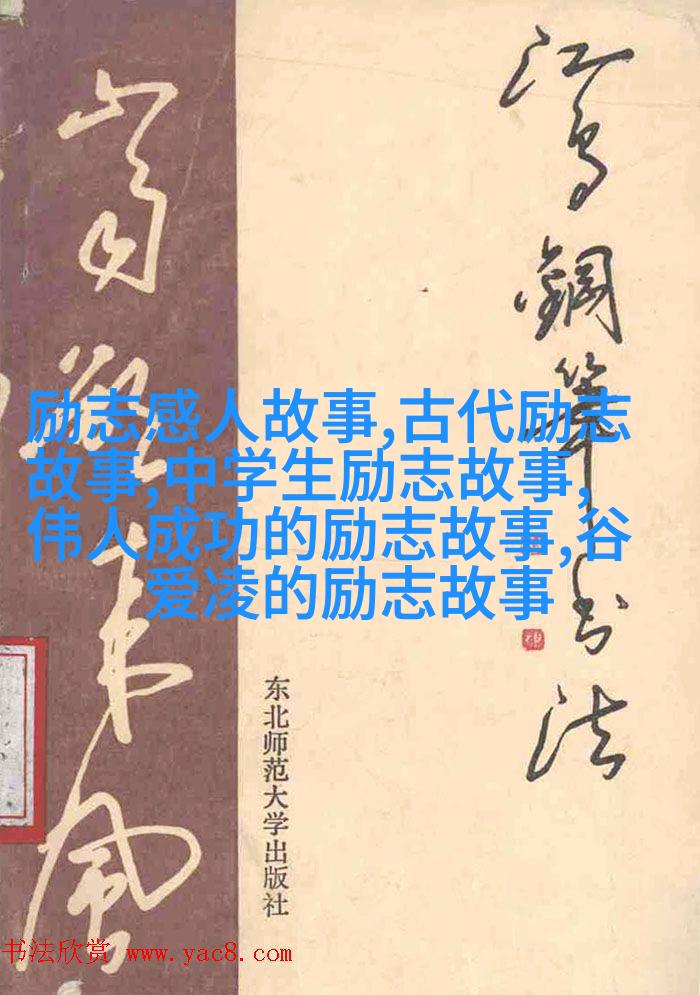 江鸟鋼筆书法
励志感人故事,古代励志
故事,中学生励志故事,
伟人成功的励志故事,谷
爱凌的励志故事
东北师范大学出版社
书法欣赏 www.yac8.com